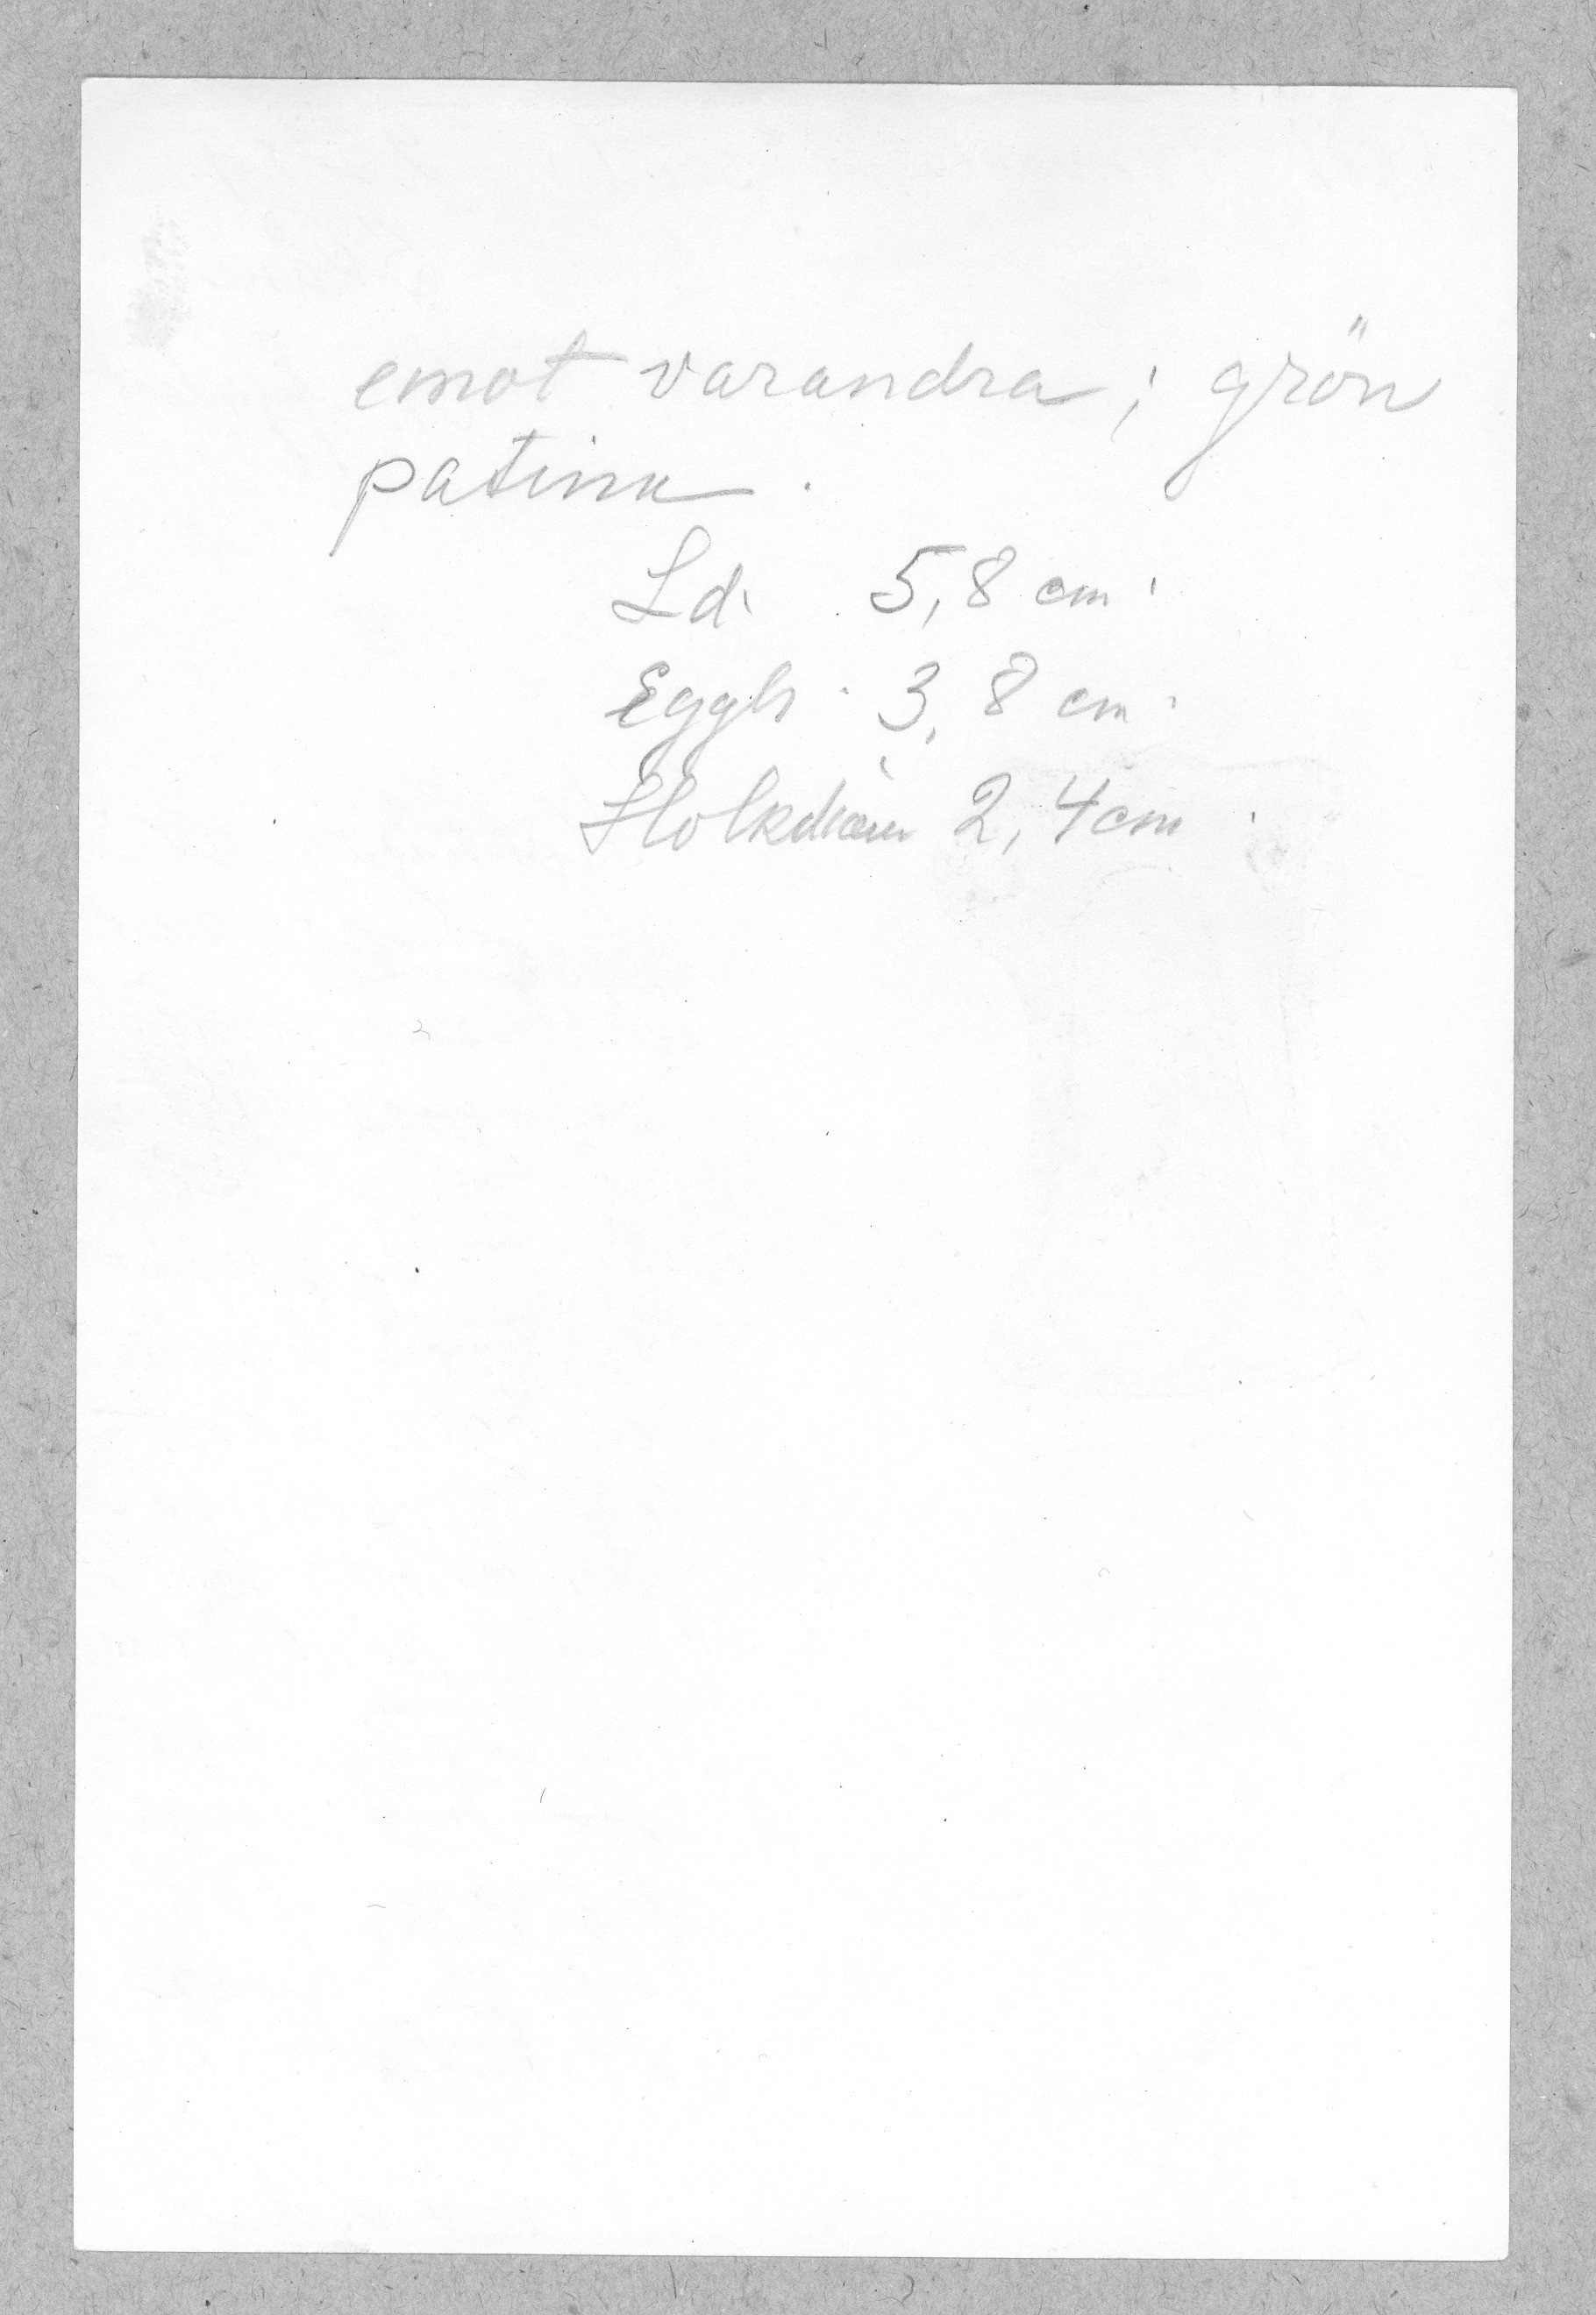 emot varandra; grön
patina.
Ld. 5,8 cm.
Eggb. 3,8 cm.
Holkdiam 2,4 cm.